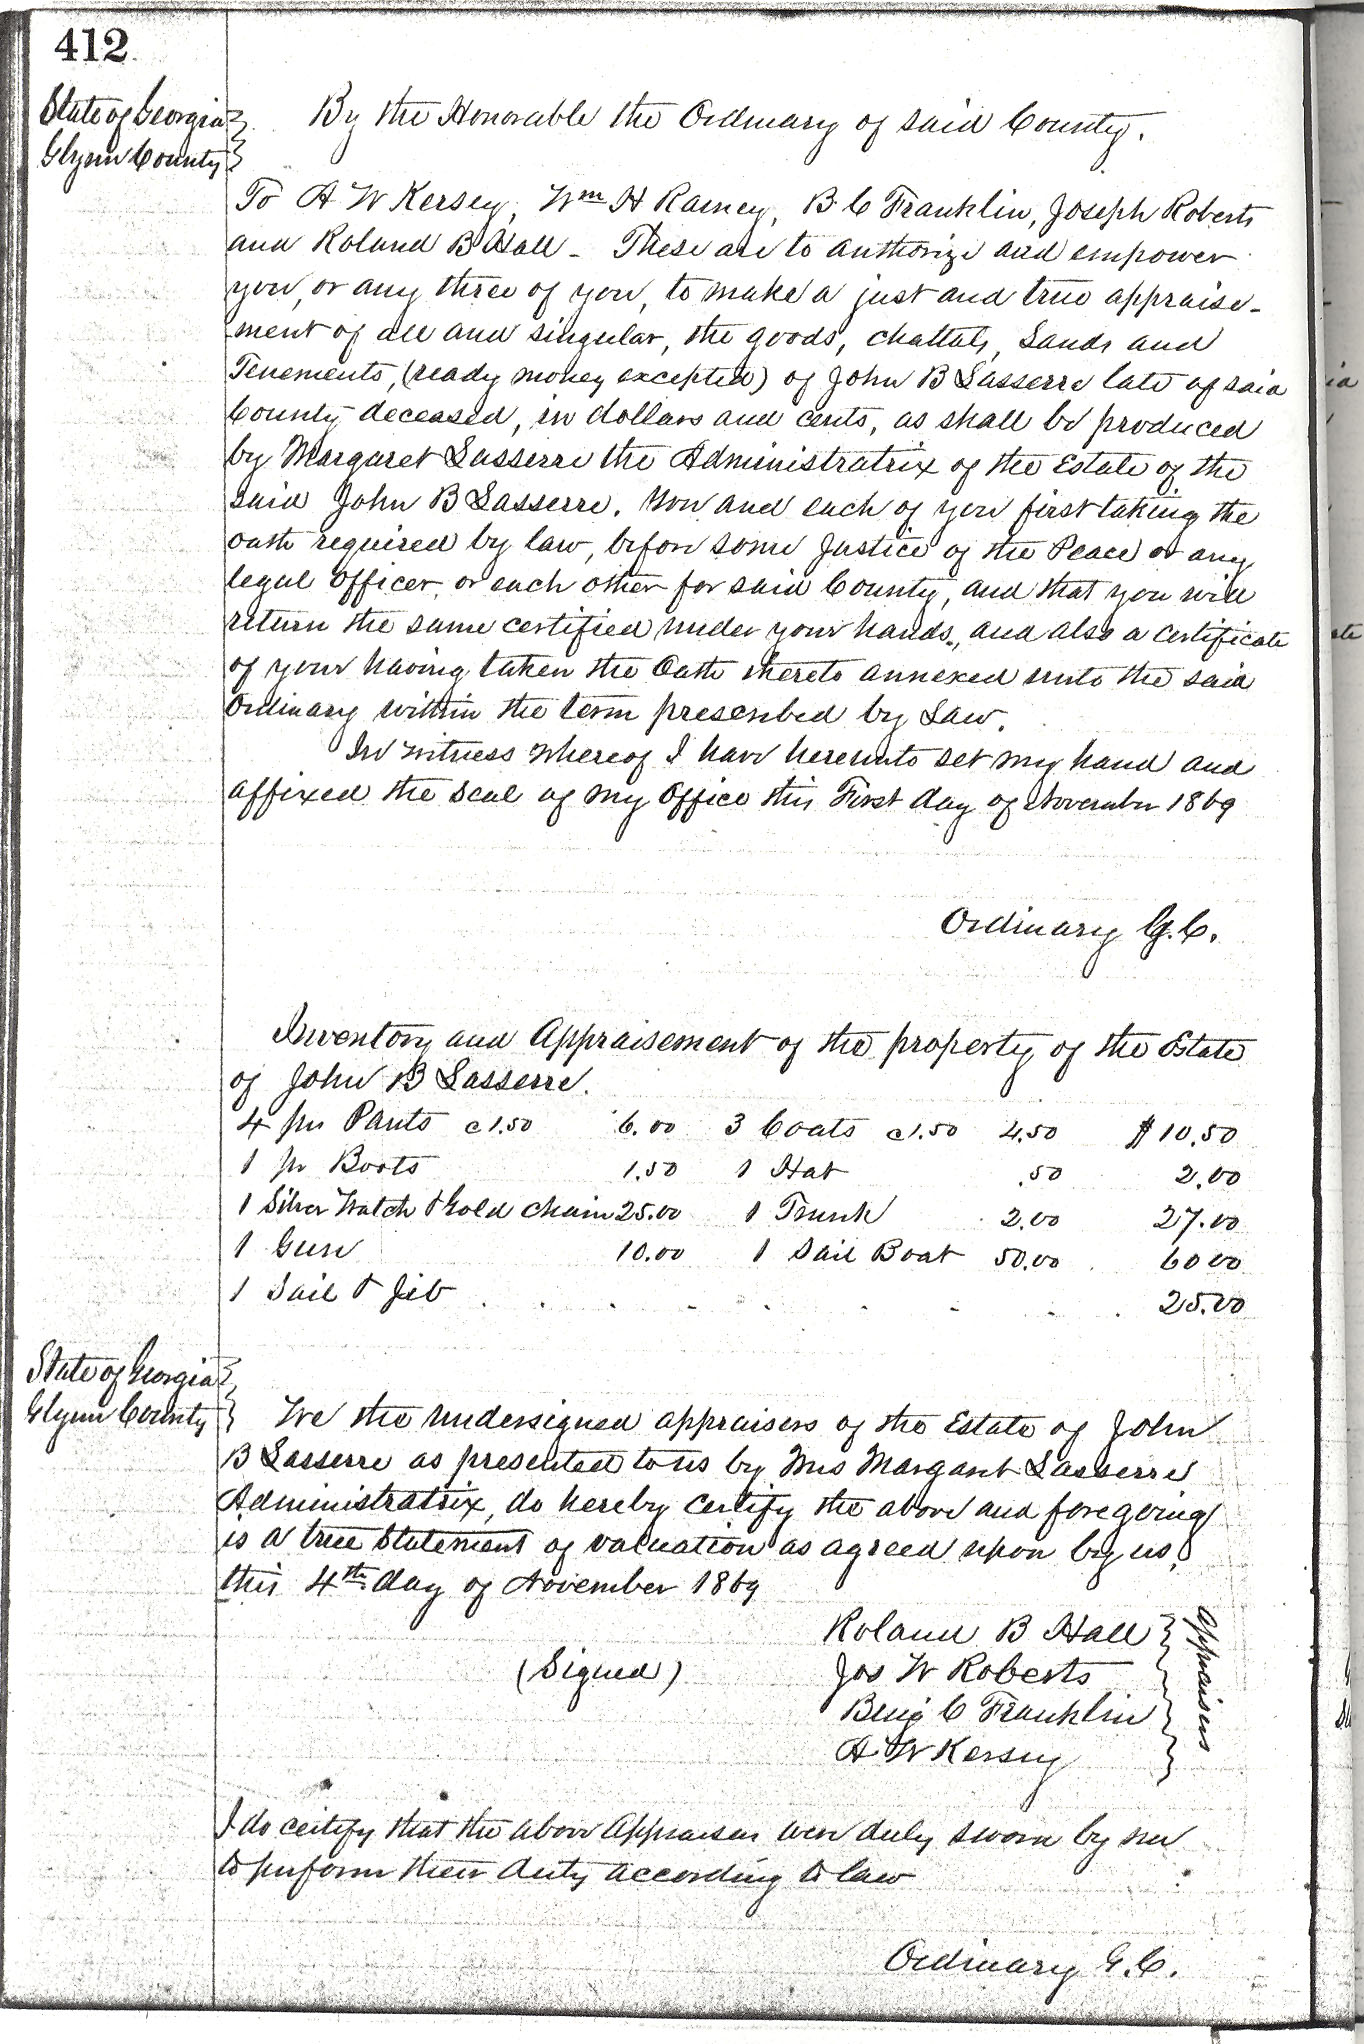 412
State of Georgia
Glynn County
By the Honorable the Ordinary of said County.
To A W Kersey, Wm H Rainey, B. C Franklin, Joseph Roberts
and Roland B Hall - These are to authorize and empower
you, or any three of you, to make a just and true appraise-
ment of all and singular, the goods, chattals, Lands and
Tenements, (ready money excepted) of John B Lasserre late of said
County deceased, in dollars and cents, as shall be produced
by Margaret Lasserre the Administratrix of the Estate of the
said John B Lasserre. You and each of you first taking the
oath required by law, before some Justice of the Peace or any
legal officer, or each other for said County, and that you will
return the same certified under your hands, and also a certificate
of your having taken the Oath thereto annexed unto the said
Ordinary within the term prescribed by Law.
In witness whereof I have hereunto set my hand and
affixed the Seal of my Office this First day of November 1869
Ordinary G.C.
Inventory and Appraisement of the property of the Estate
of John B Lasserre.
4 pr Pants @ 1.50 6.00 3 Coats @ 1.50 4.50 $10.50
1 pr Boots 1.50 1 Hat .50 2.00
1 Silver Watch & Gold chain 25.00 1 Trunk 2.00 27.00
1 Gun 10.00 1 Sail Boat 50.00 60 00
1 Sail & Jib 25.00
State of Georgia
Glynn County
We the undersigned appraisers of the Estate of John
B Lasserre as presented to us by Mrs Margaret Lasserre
Administratrix, do hereby certify the above and foregoing
is a true Statement of valuation as agreed upon by us,
this 4th day of November 1869
Roland B Hall
(Signed) Jos W Roberts
Benj C Franklin
A. W Kersey
Appraisers
I do certify that the above Appraisers were duly sworn by me
to perform their duty according to law
Ordinary G.C.